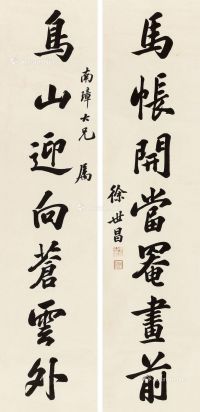 馬帳開當罨畫前
鳥山迎向蒼雲外
南璋大兄 屬
徐世昌